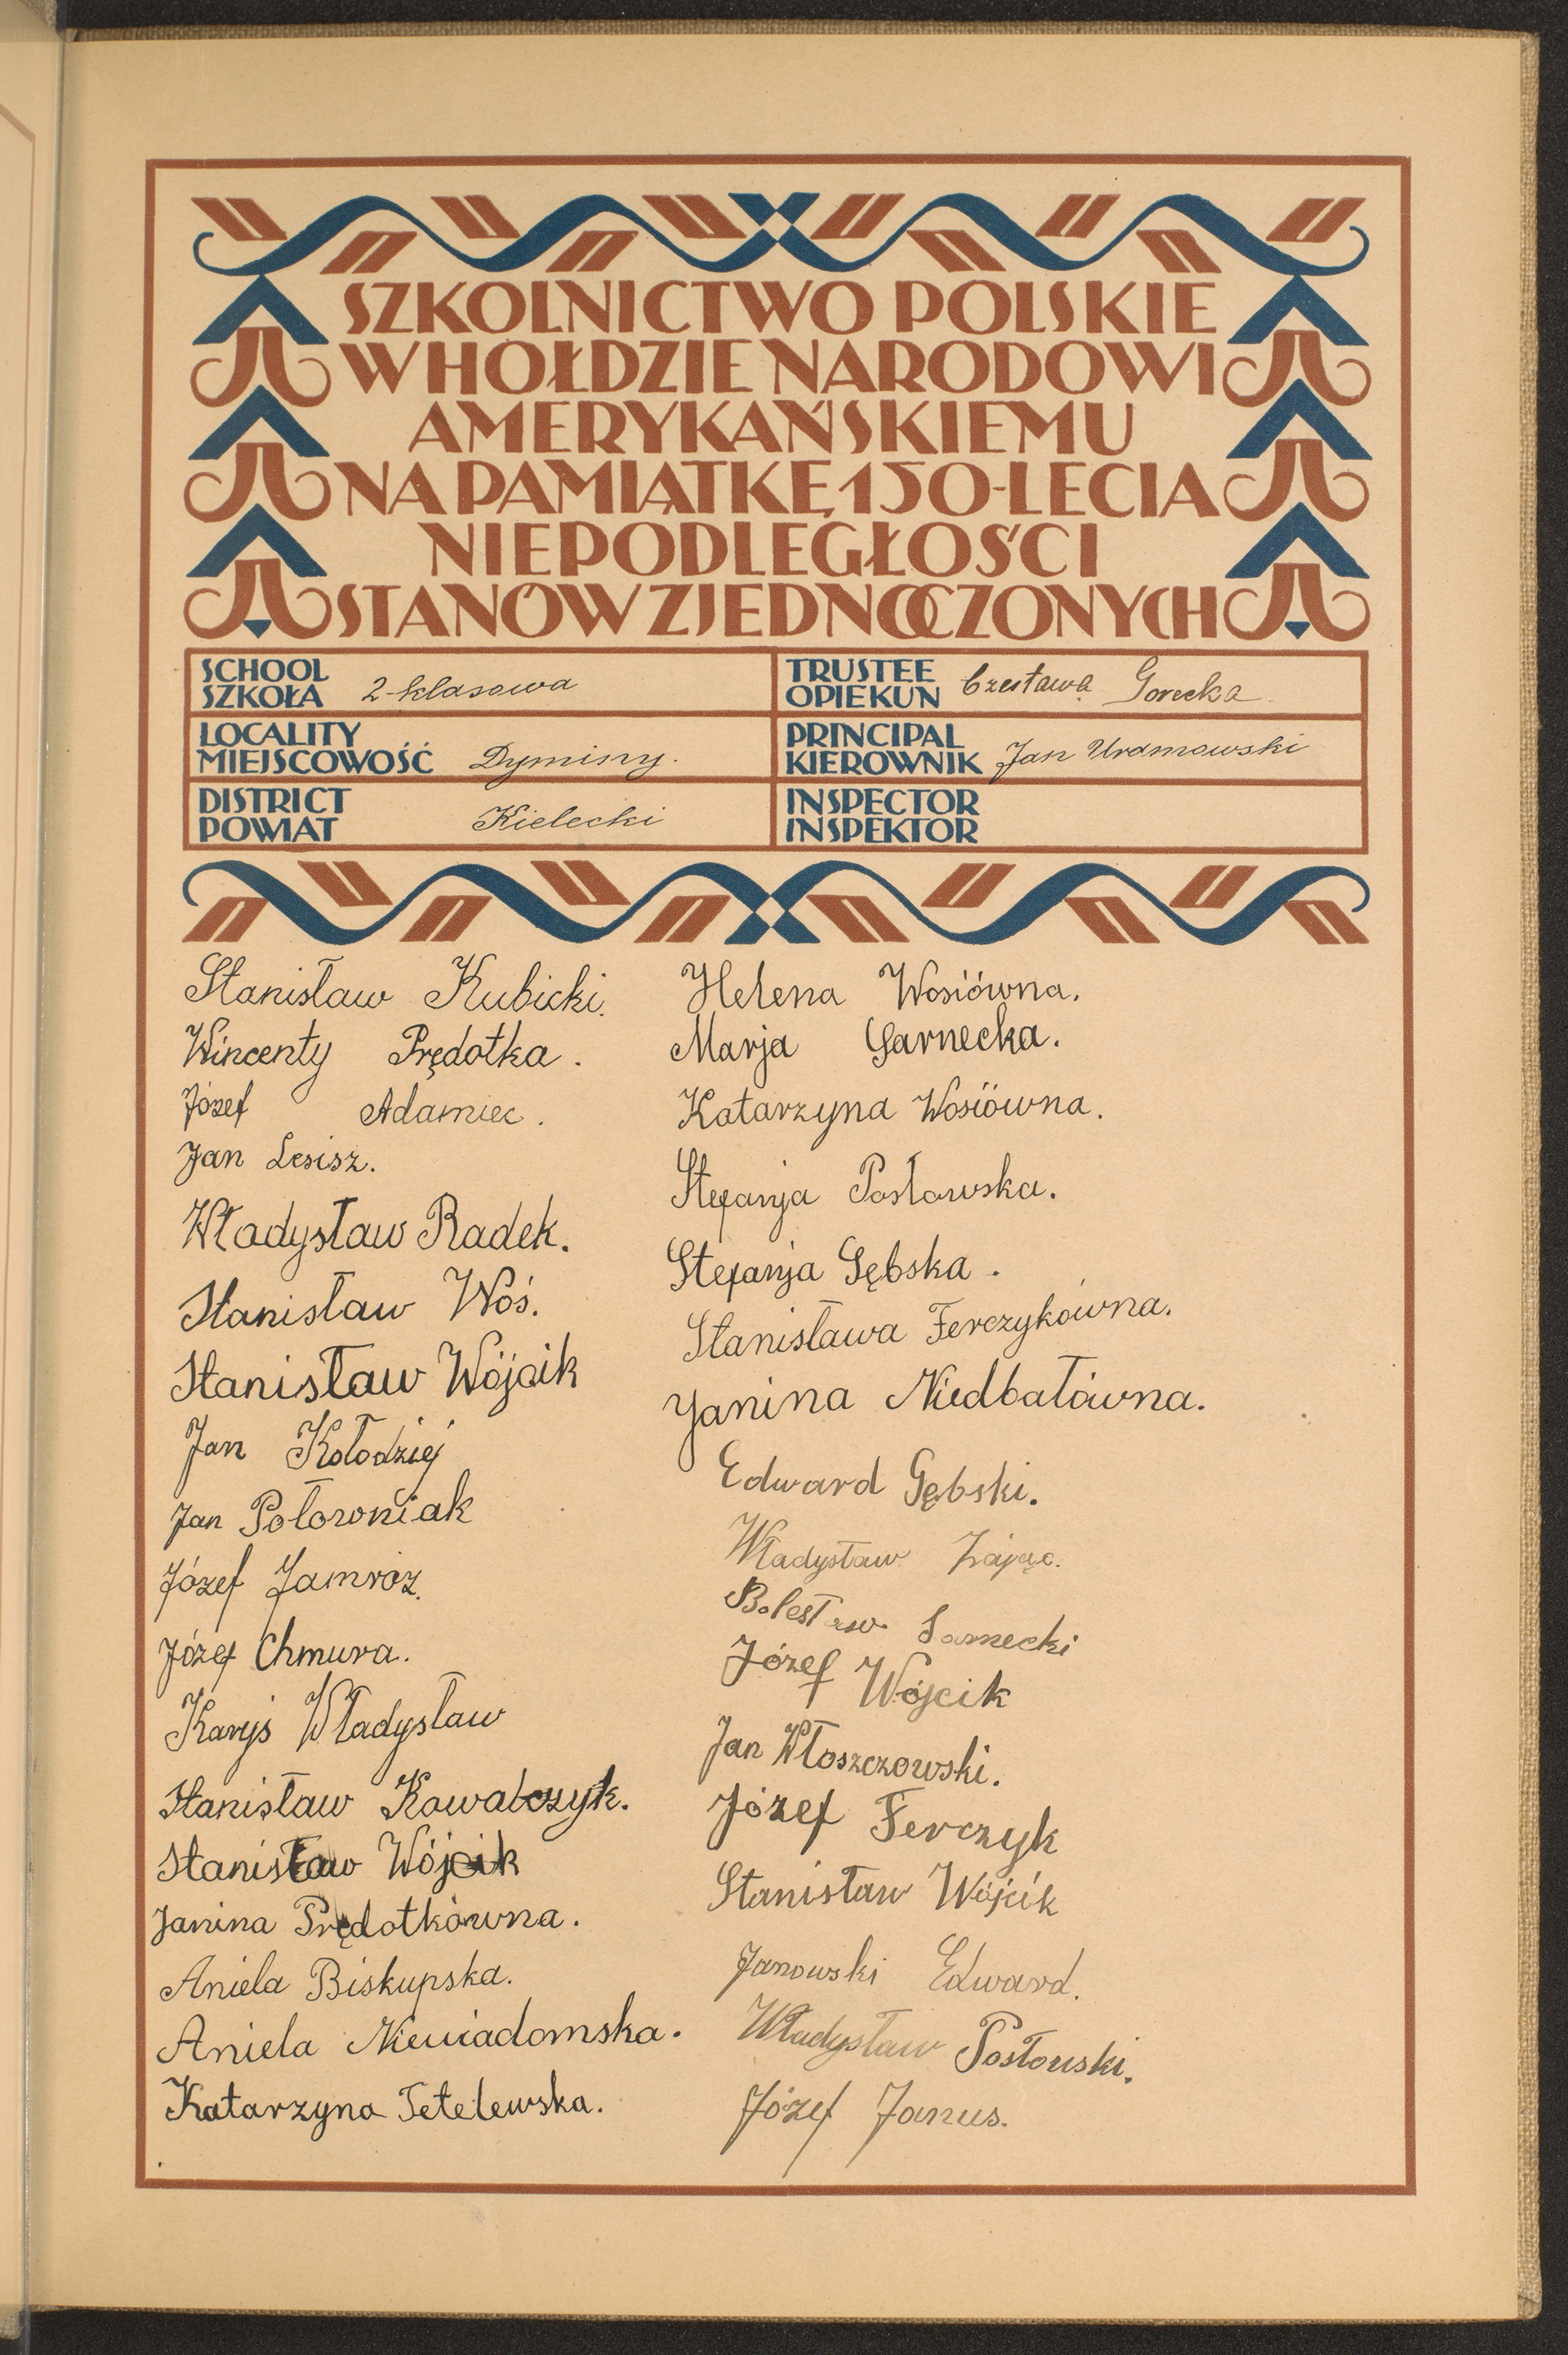 SZKOLNICTWO POLSKIE
W HOŁDZIE NARODOWI
AMERYKAŃSKIEMU
NA PAMIĄTKĘ 150-LECIA
NIEPODLEGŁOŚCI
STANÓW ZJEDNOCZONYCH
SCHOOL
SZKOŁA 2-klasowa
TRUSTEE
OPIEKUN Czesława Gorecka
LOCALITY
MIEJSCOWOŚĆ Dyminy.
PRINCIPAL
KIEROWNIK Jan
DISTRICT
POWIAT Kielecki
INSPECTOR
INSPEKTOR
Stanisław Kubicki.
Wincenty Prędotka.
Józef Adamiec.
Jan Lesisz.
Władysław Radek.
Stanisław Woś.
Stanisław Wójcik
Jan Kołodziej
Jan Połowniak
Józef Jamróz.
Józef Chmura.
Karyś Władysław
Stanisław Kowalczyk.
Stanisław Wójcik
Janina Prędotkówna.
Aniela Biskupska.
Aniela Niewiadomska.
Katarzyna Tetelewska.
Helena Wosiówna.
Marja Garnecka.
Katarzyna Wosiówna.
Stefanja Posłowska.
Stefanja Gębska.
Stanisława Ferczykówna.
Janina Niedbałówna.
Edward Gębski.
Władysław Zając.
Bolesław
Józef Wójcik
Jan Włoszczowski.
Józef Ferczyk
Stanisław Wójcik
Janowski Edward.
Władysław Posłowski.
Józef Janus.